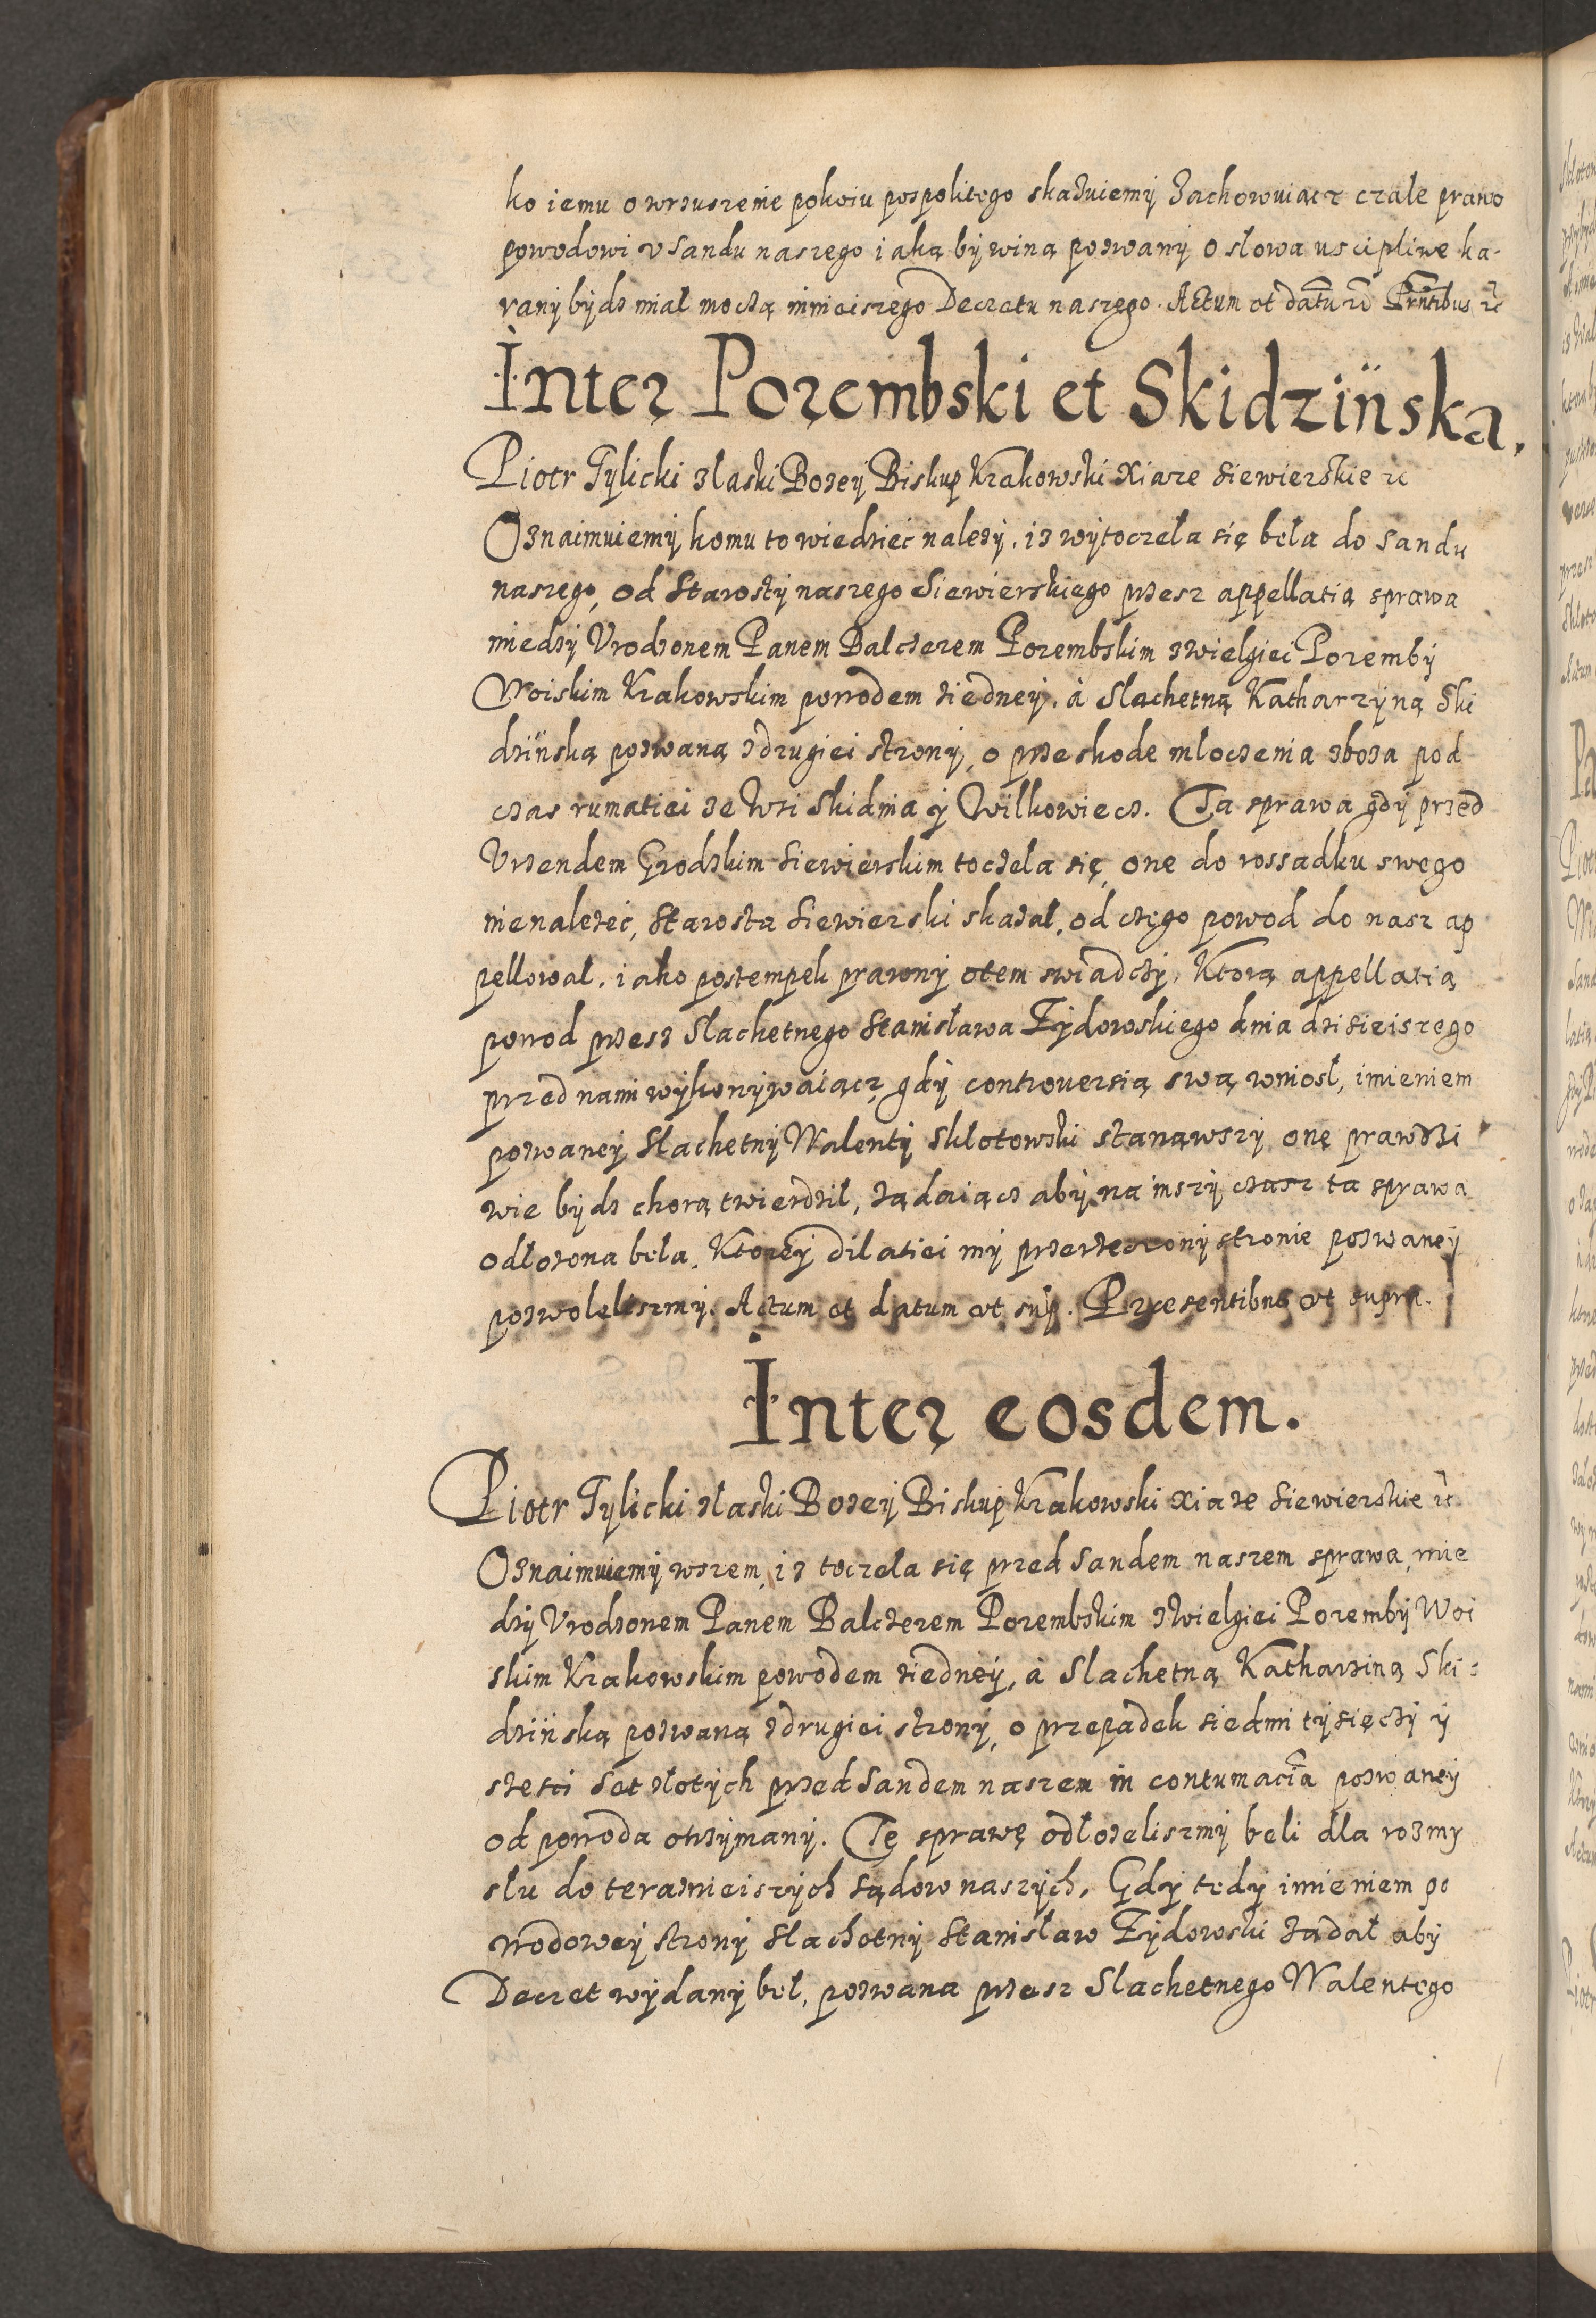 ko iemu o wrzuszenie pokoiu pospolitego skazuiemy zachowuiącz czale prawo
powodowi v sandu naszego iaką by winą pozwany o słowa usczipliwe ka-
rany bydz mial moczą ninieiszego Decretu naszego. Actum et datu ut Prntibus rc
Inter Porembski et Skidzińska.
Piotr Tylicki złaski Bozey Biskup Krakowski Xiaze Siewierskie rc
Oznaimuiemy komu to wiedziec nalezy, iz wytoczeła się beła do Sandu
naszego, od Starosty naszego Siewierskiego przesz appellatią sprawa
miedzy Vrodzonem Panem Balczerem Porembskim zwielgiei Poremby
Woiskim Krakowskim powodem ziedney, à Slachetną Katharzyną Ski
dzińską pozwaną zdrugiei strony, o przeskode młoczenia zboza pod
czas rumatiei ze wsi Skidnia y Wilkowiecz. Ta sprawa gdy przed
Vrzendem Grodzkim Siewierskim toczeła się, one do rossadku swego
nienalezeć, Starosta Siewierski skazał, od czego powod do nasz ap
pellowal, iako postempek prawny otem swiadczy, Ktorą appellatią
powod przesz Slachetnego Stanisława Zydowskiego dnia dzisieiszego
przed nami wykonywaiącz, gdy controuersią swą wniosł, imieniem
pozwaney Slachetny Walenty Skłotowski stanąwszy onę prawdzi
wie bydz chorą twierdził, ządaiącz aby na inszy czasz ta sprawa
odłozona beła. Ktorey dilatiei my przerzeczony stronie pozwaney
pozwoleliszmy. Actum et datum ut sup. Præsentibus ut supra.
Inter eosdem.
Piotr Tylicki złaski Bozey Biskup Krakowski Xiaze Siewierskie rc
Oznaimuiemy wszem, iz toczeła się przed Sandem naszem sprawa, mie
dzy Vrodzonem Panem Balczerem Porembskim zwielgiei Poremby Woi
skim Krakowskim powodem ziedney, à Slachetną Katharziną Ski-
dzińską pozwaną zdrugiei strony, o przepadek siedmi tysięczy y
szesci Set złotych przed Sandem naszem in contumaciã pozwaney
od powoda otrzymany. Tę sprawę odłozeliszmy beli dla rozmy
słu do teraznieiszych sądow naszych. Gdy tedy imieniem po
wodowey strony Slachetny Stanisław Zydowski ządał aby
Decret wydany beł, pozwana przesz Slachetnego Walentego